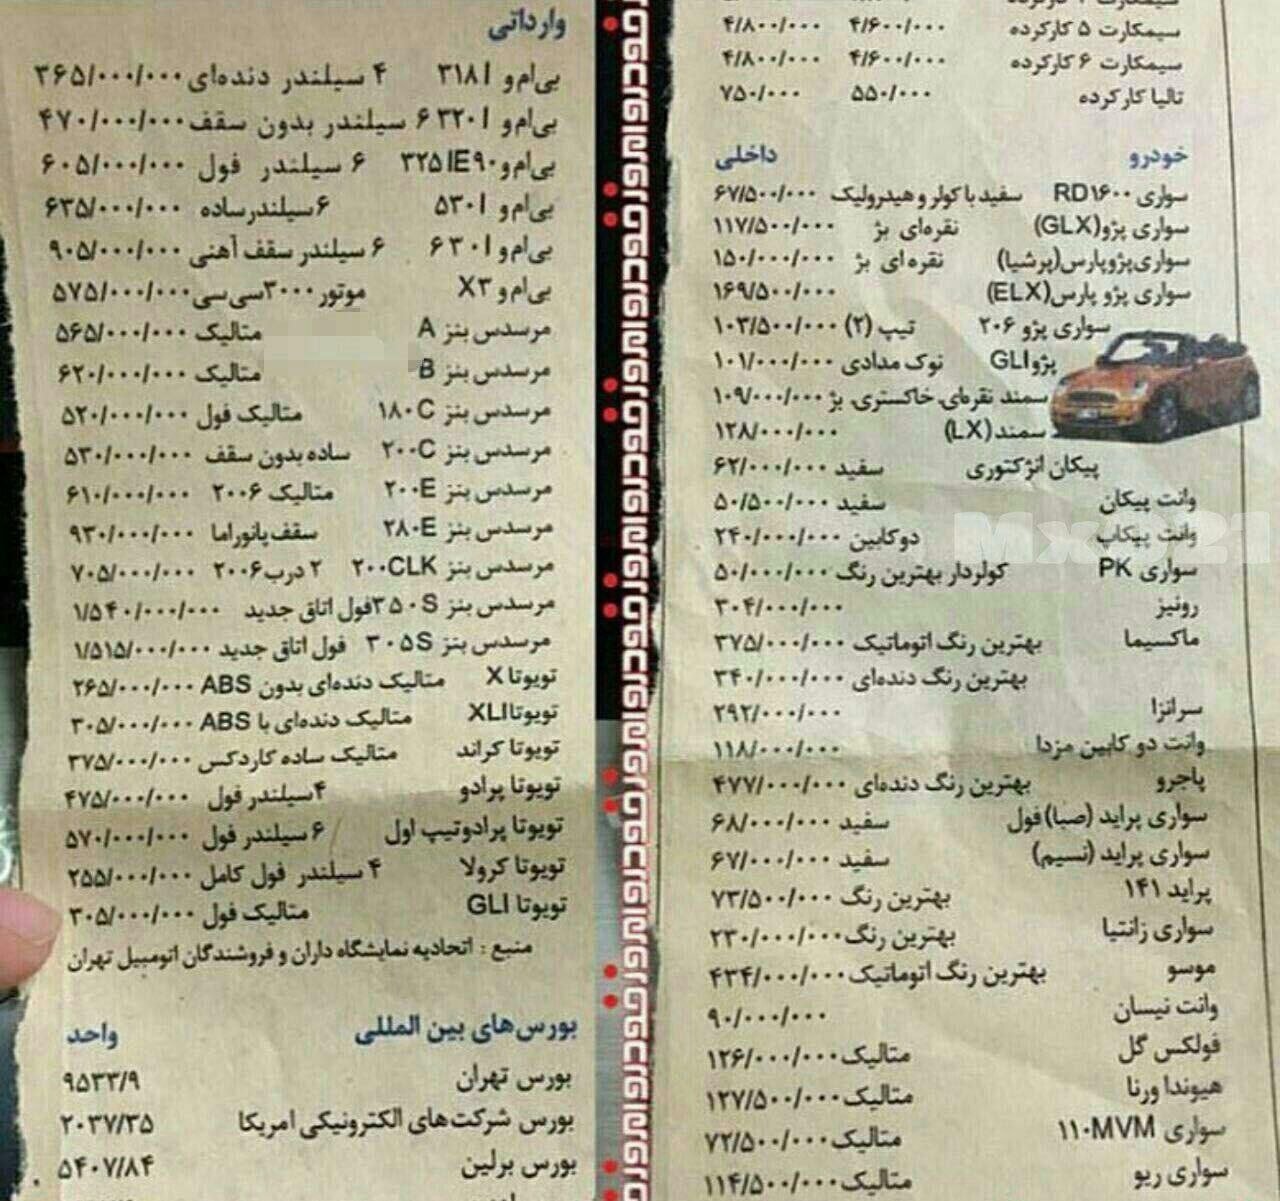 سیمکارت ۵ کارکرده ۴/۶۰۰/۰۰۰ ۴/۸۰۰/۰۰۰
سیمکارت ۶ کارکرده ۴/۶۰۰/۰۰۰ ۴/۸۰۰/۰۰۰
تالیا کارکرده ۵۵۰/۰۰۰ ۷۵۰/۰۰۰
خودرو داخلی
سواری RD۱۶۰۰ سفید با کولر و هیدرولیک ۶۷/۵۰۰/۰۰۰
سواری پژو(GLX) نقره‌ای بژ ۱۱۷/۵۰۰/۰۰۰
سواری‌پژوپارس(پرشیا) نقره ای بژ ۱۵۰/۰۰۰/۰۰۰
سواری پژو پارس(ELX) ۱۶۹/۵۰۰/۰۰۰
سواری پژو ۲۰۶ تیپ (۲) ۱۰۳/۵۰۰/۰۰۰
پژوGLI نوک مدادی ۱۰۱/۰۰۰/۰۰۰
سمند نقره‌ای، خاکستری، بژ ۱۰۹/۰۰۰/۰۰۰
سمند(LX) ۱۲۸/۰۰۰/۰۰۰
پیکان انژکتوری سفید ۶۲/۰۰۰/۰۰۰
وانت پیکان سفید ۵۰/۵۰۰/۰۰۰
وانت پیکاپ دوکابین ۲۴۰/۰۰۰/۰۰۰
سواری PK کولردار بهترین رنگ ۵۰/۰۰۰/۰۰۰
رونیز ۳۰۴/۰۰۰/۰۰۰
ماکسیما بهترین رنگ اتوماتیک ۳۷۵/۰۰۰/۰۰۰
بهترین رنگ دنده‌ای ۳۴۰/۰۰۰/۰۰۰
سرانزا ۲۹۲/۰۰۰/۰۰۰
وانت دو کابین مزدا ۱۱۸/۰۰۰/۰۰۰
پاجرو بهترین رنگ دنده‌ای ۴۷۷/۰۰۰/۰۰۰
سواری پراید (صبا) فول سفید ۶۸/۰۰۰/۰۰۰
سواری پراید (نسیم) سفید ۶۷/۰۰۰/۰۰۰
پراید ۱۴۱ بهترین رنگ ۷۳/۵۰۰/۰۰۰
سواری زانتیا بهترین رنگ ۲۳۰/۰۰۰/۰۰۰
موسو بهترین رنگ اتوماتیک ۴۳۴/۰۰۰/۰۰۰
وانت نیسان ۹۰/۰۰۰/۰۰۰
فولکس گل متالیک ۱۲۶/۰۰۰/۰۰۰
هیوندا ورنا متالیک ۱۲۷/۵۰۰/۰۰۰
سواری ۱۱۰MVM متالیک ۷۲/۵۰۰/۰۰۰
سواری ریو متالیک ۱۱۴/۵۰۰/۰۰۰
وارداتی
بی‌ام‌و ۳۱۸I ۴ سیلندر دنده‌ای ۳۶۵/۰۰۰/۰۰۰
بی‌ام‌و ۳۲۰I ۶ سیلندر بدون سقف ۴۷۰/۰۰۰/۰۰۰
بی‌ام‌و ۳۲۵IE۹۰ ۶ سیلندر فول ۶۰۵/۰۰۰/۰۰۰
بی‌ام‌و ۵۳۰I ۶سیلندر ساده ۶۳۵/۰۰۰/۰۰۰
بی‌ام‌و ۶۳۰I ۶ سیلندر سقف آهنی ۹۰۵/۰۰۰/۰۰۰
بی‌ام‌و X۳ موتور ۳۰۰۰سی‌سی ۵۷۵/۰۰۰/۰۰۰
مرسدس بنز A متالیک ۵۶۵/۰۰۰/۰۰۰
مرسدس بنز B متالیک ۶۲۰/۰۰۰/۰۰۰
مرسدس بنز ۱۸۰C متالیک فول ۵۲۰/۰۰۰/۰۰۰
مرسدس بنز ۲۰۰C ساده بدون سقف ۵۳۰/۰۰۰/۰۰۰
مرسدس بنز ۲۰۰E متالیک ۲۰۰۶ ۶۱۰/۰۰۰/۰۰۰
مرسدس بنز ۲۸۰E سقف پانوراما ۹۳۰/۰۰۰/۰۰۰
مرسدس بنز ۲۰۰CLK ۲ درب ۲۰۰۶ ۷۰۵/۰۰۰/۰۰۰
مرسدس بنز ۳۵۰S فول اتاق جدید ۱/۵۴۰/۰۰۰/۰۰۰
مرسدس بنز ۳۰۵S فول اتاق جدید ۱/۵۱۵/۰۰۰/۰۰۰
تویوتا X متالیک دنده‌ای بدون ABS ۲۶۵/۰۰۰/۰۰۰
تویوتا XLI متالیک دنده‌ای با ABS ۳۰۵/۰۰۰/۰۰۰
تویوتا کراند متالیک ساده کاردکس ۳۷۵/۰۰۰/۰۰۰
تویوتا پرادو ۴سیلندر فول ۴۷۵/۰۰۰/۰۰۰
تویوتا پرادو تیپ اول ۶ سیلندر فول ۵۷۰/۰۰۰/۰۰۰
تویوتا کرولا ۴ سیلندر فول کامل ۲۵۵/۰۰۰/۰۰۰
تویوتا GLI متالیک فول ۳۰۵/۰۰۰/۰۰۰
منبع : اتحادیه نمایشگاه داران و فروشندگان اتومبیل تهران
بورس‌های بین المللی واحد
بورس تهران ۹۵۳۳/۹
بورس شرکت‌های الکترونیکی امریکا ۲۰۳۷/۳۵
بورس برلین ۵۴۰۷/۸۴